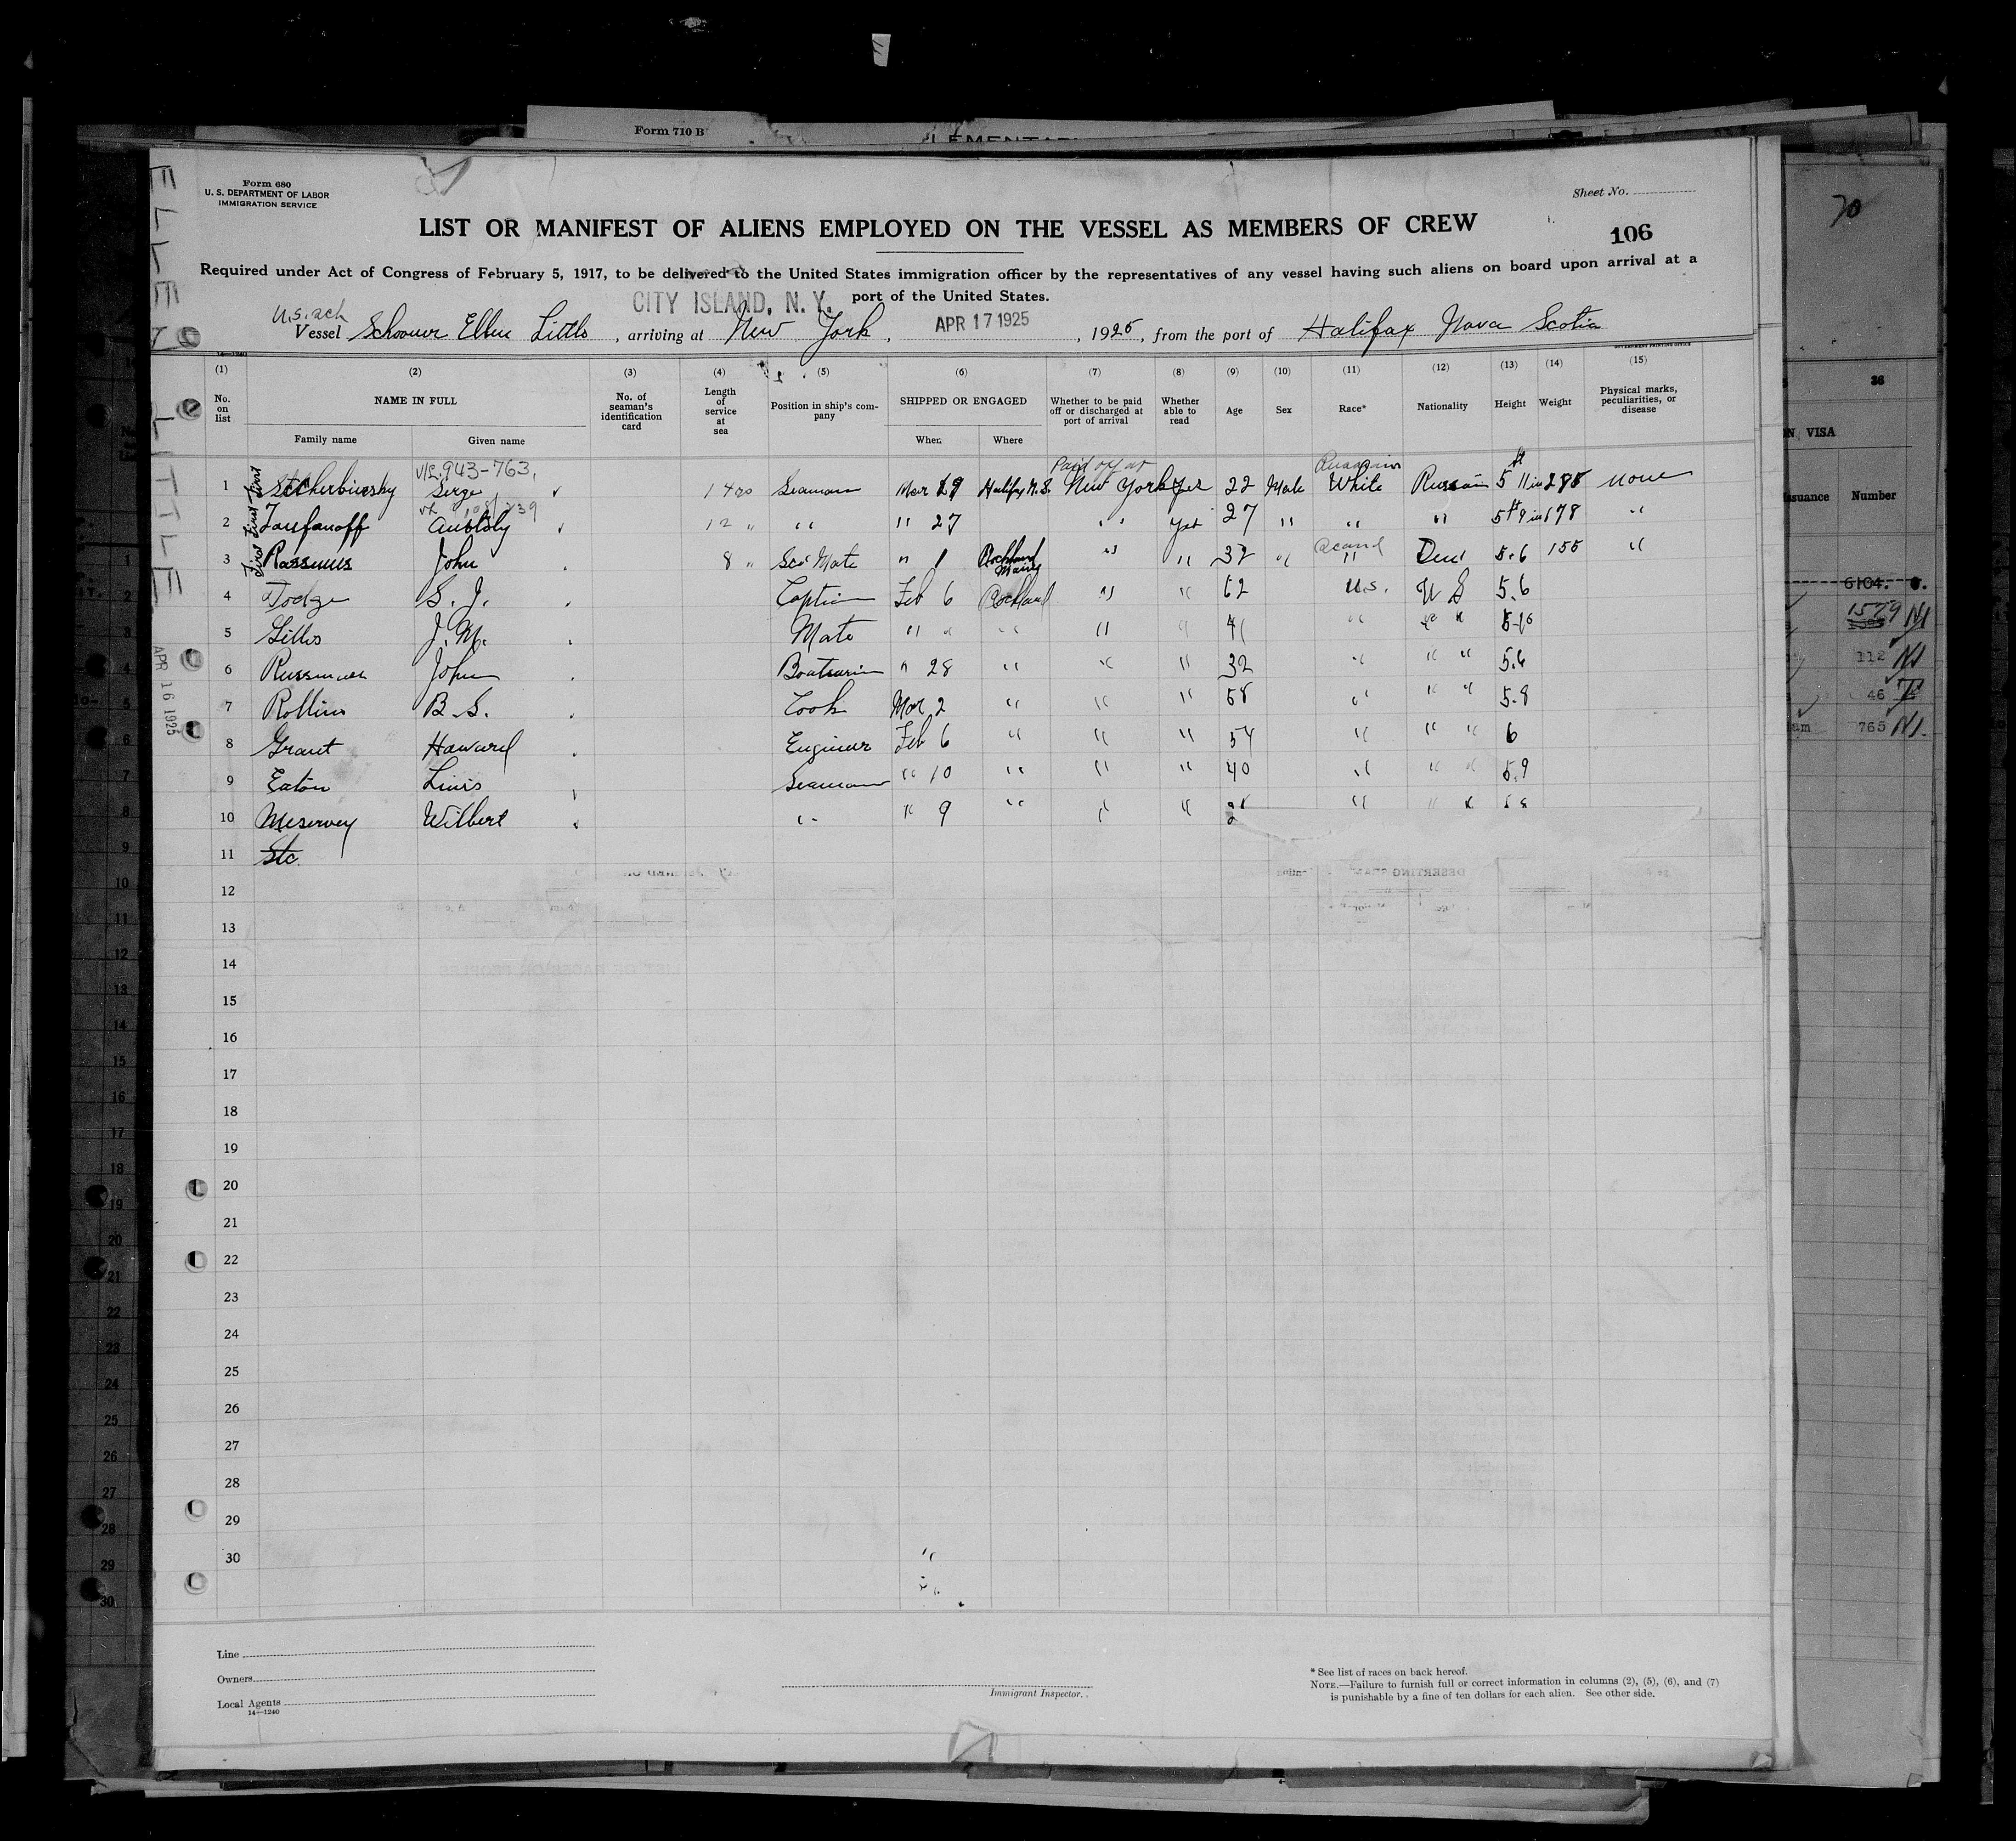 Form 710 B
Form 680
U. S. DEPARTMENT OF LABOR
IMMIGRATION SERVICE
Sheet No.
LIST OR MANIFEST OF ALIENS EMPLOYED ON THE VESSEL AS MEMBERS OF CREW
106
70
Required under Act of Congress of February 5, 1917, to be delivered to the United States immigration officer by the representatives of any vessel having such aliens on board upon arrival at a
port of the United States.
CITY ISLAND, N. Y.
Vessel Schooner Ellen Little, arriving at New York, APR 17 1925, 1925, from the port of Halifax Nova Scotia
ELLEN LITTLE
APR 16 1925
(1) (2) (3) (4) (5) (6) (7) (8) (9) (10) (11) (12) (13) (14) (15)
No. on list
NAME IN FULL
Family name Given name
No. of seaman's identification card
Length of service at sea
Position in ship's company
SHIPPED OR ENGAGED
When Where
Whether to be paid off or discharged at port of arrival
Whether able to read
Age Sex Race* Nationality Height Weight
Physical marks, peculiarities, or disease
943-763,
Paid off at
Russian
1 Serge Seaman Mar 29 Halifax N.S. New York Yes 22 Male White Russian 5 ft 11 in none
2 12 " " " " 27 " " yes 27 " " " " " " 5 ft 9 in 178 " "
Scand
3 Rassmus John 8 " Sec Mate " 1 Rockland Maine " " " " 32 " " " " Den 5.6 155 " "
4 Dodge S. J. Captain Feb 6 Rockland " " " " 62 U.S. U S 5.6
5 Gillis J. M. Mate " " " " " " " " " 41 " " " "
6 John Boatswain " 28 " " " " " " 32 " " " " 5.6
7 Rollins B. S. Cook Mar 2 " " " " " " 58 " " " " 5.8
8 Grant Howard Engineer Feb 6 " " " " " " 54 " " " " 6
9 Eaton Seaman " 10 " " " " " " 40 " " " " 5.9
10 Meservey Wilbert " " " 9 " " " " " " " " " "
11 Stc.
12
13
14
15
16
17
18
19
20
21
22
23
24
25
26
27
28
29
30
Line
Owners
Local Agents
14—1240
Immigrant Inspector.
* See list of races on back hereof.
NOTE.—Failure to furnish full or correct information in columns (2), (5), (6), and (7)
is punishable by a fine of ten dollars for each alien. See other side.
36
VISA
Number
6104.
1579
112
46
765